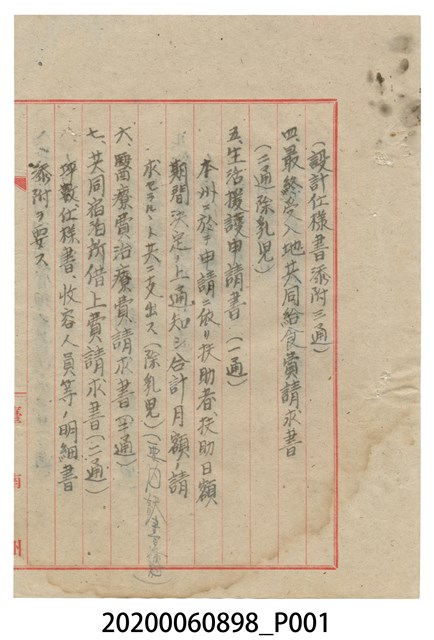 (設計仕様書添附三通)
四、最終受入地共同給食費請求書
(二通除乳児)
五、生活援護申請書(二通)
本州ニ於テ申請ニ依リ扶助者、扶助日額
期間決定ノ上通知シ合計月額ノ請
求セラルヽト共ニ支出ス(除乳児)
六、醫療費治療費請求書(二通)
七、共同宿泊所借上費請求書(二通)
坪數仕様書、收容人員等ノ明細書
添附ヲ要ス
臺南州
20200060898_P001